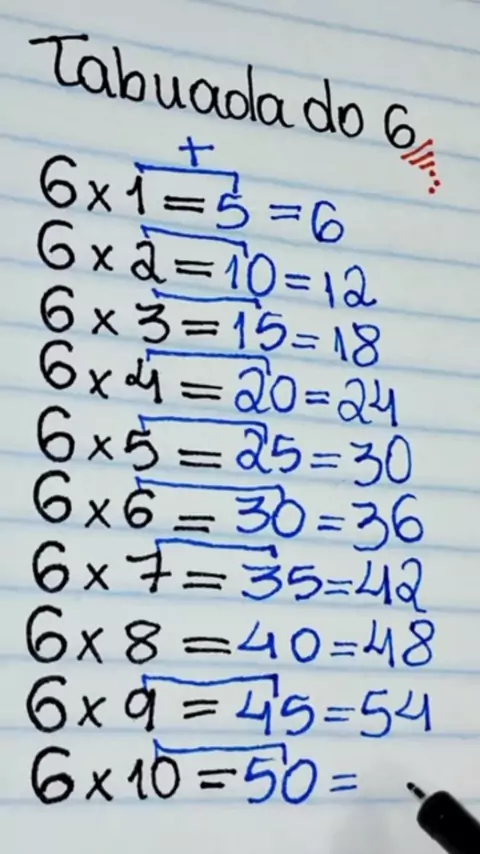 Tabuada do 6
+
6 x 1 = 5 = 6
6 x 2 = 10 = 12
6 x 3 = 15 = 18
6 x 4 = 20 = 24
6 x 5 = 25 = 30
6 x 6 = 30 = 36
6 x 7 = 35 = 42
6 x 8 = 40 = 48
6 x 9 = 45 = 54
6 x 10 = 50 =